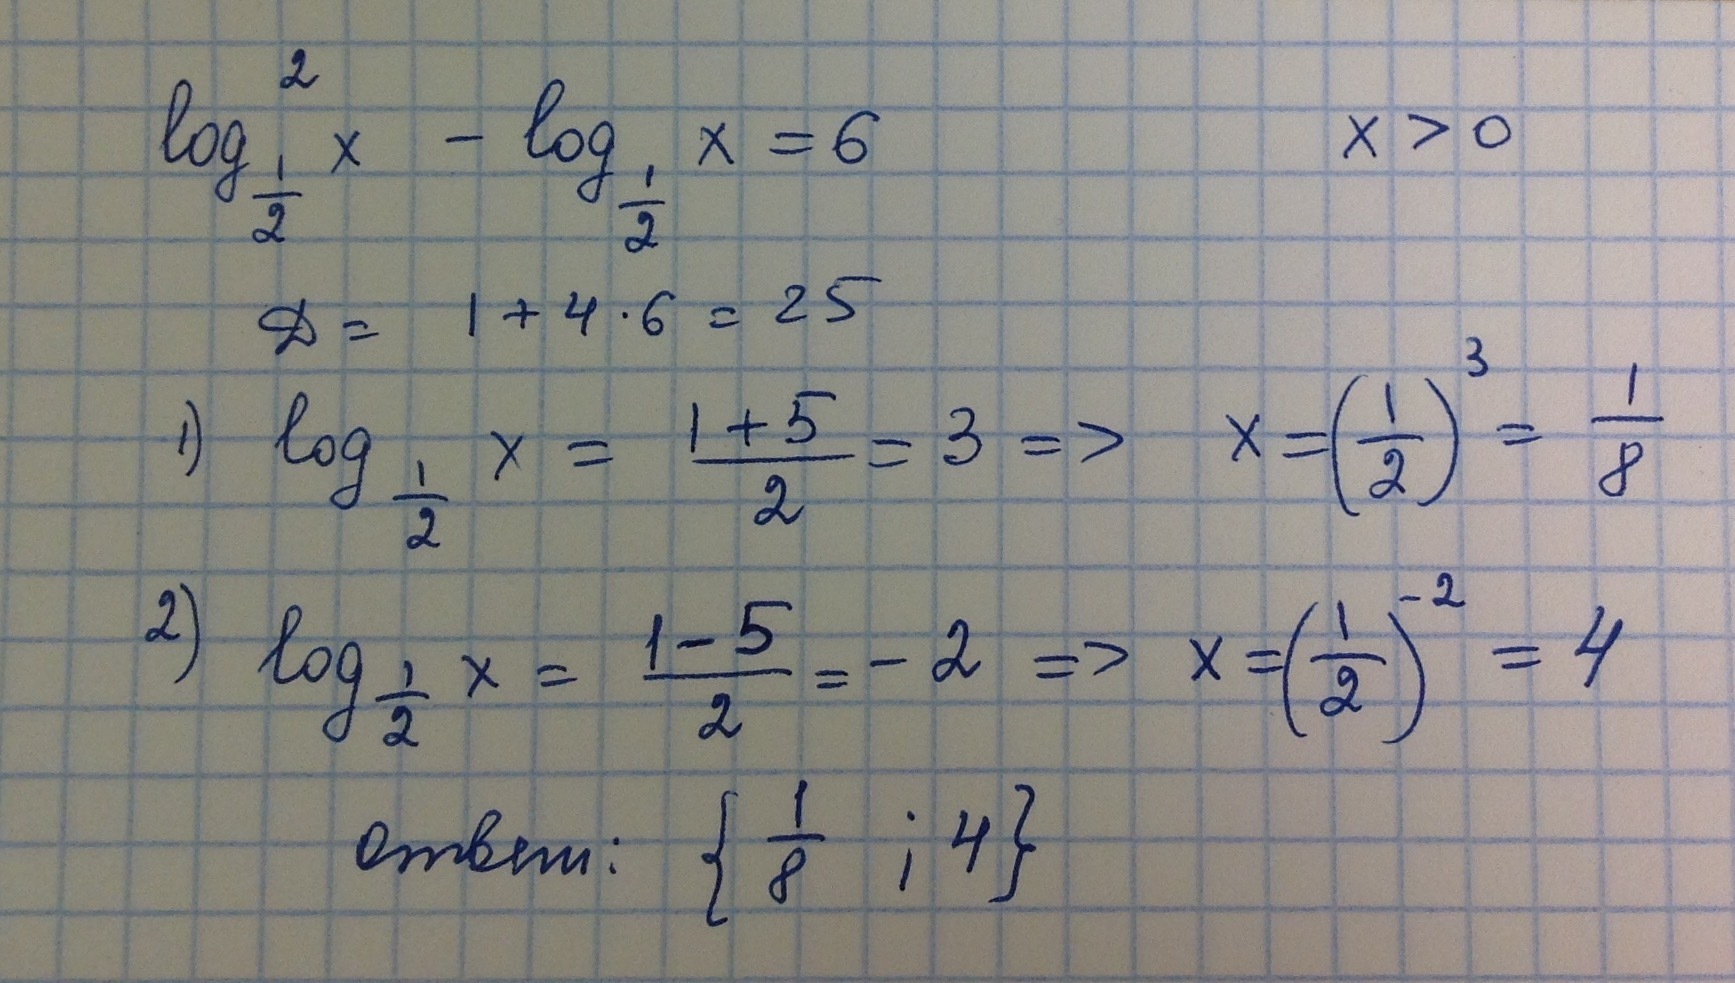 log²_{1/2} x − log_{1/2} x = 6    x > 0
D = 1 + 4 · 6 = 25
1) log_{1/2} x = (1 + 5)/2 = 3 => x = (1/2)^3 = 1/8
2) log_{1/2} x = (1 − 5)/2 = −2 => x = (1/2)^{−2} = 4
ответ: {1/8 ; 4}